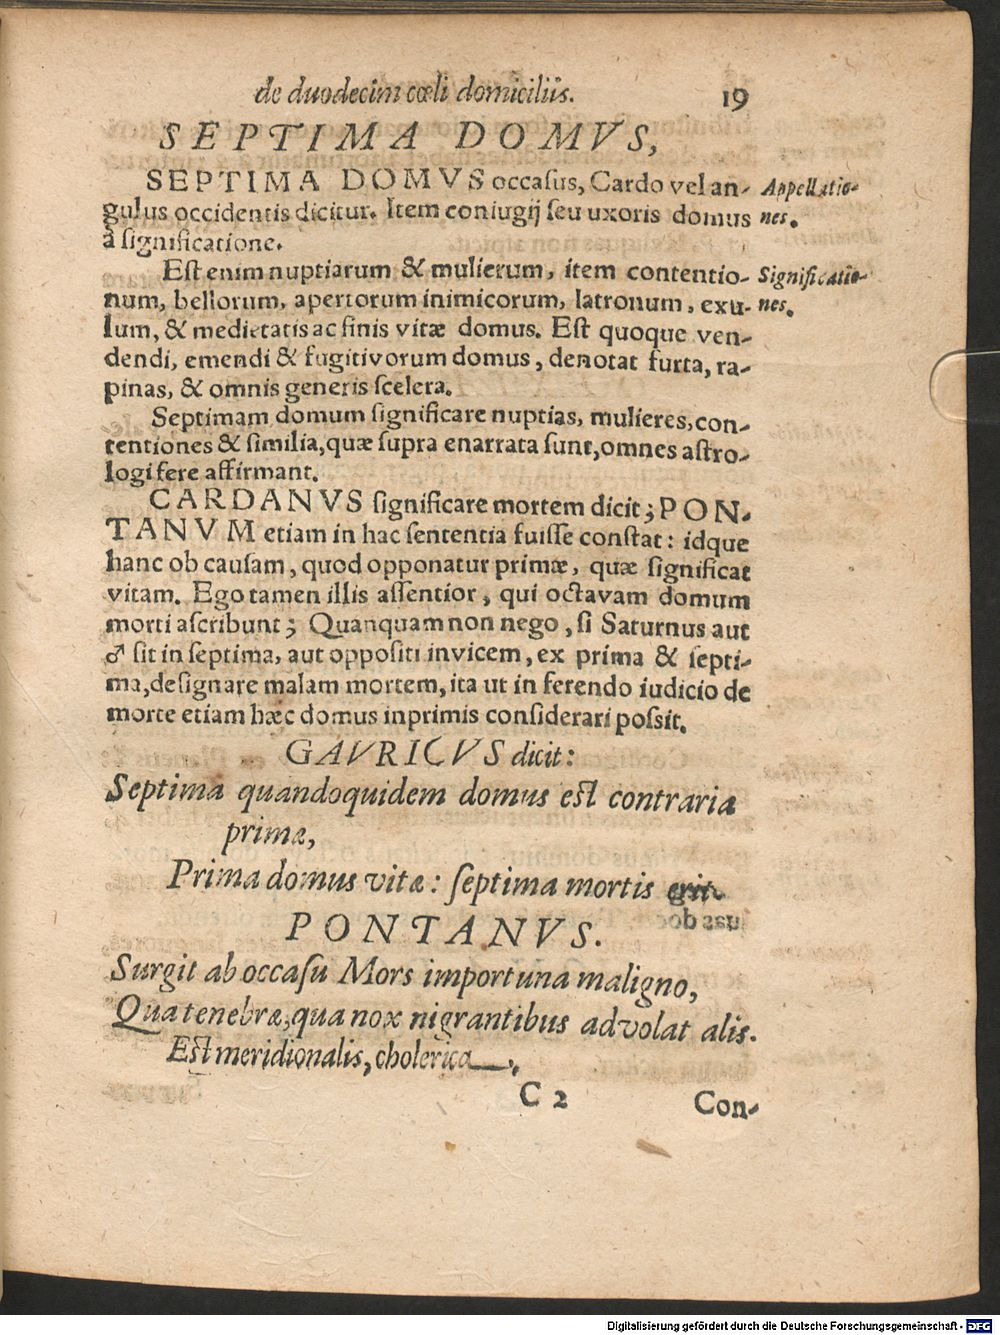 de duodecim cœli domiciliis. 19
SEPTIMA DOMVS,
SEPTIMA DOMVS occasus, Cardo vel an- Appellatio-
gulus occidentis dicitur. Item coniugij seu uxoris domus nes.
à significatione.
Est enim nuptiarum & mulierum, item contentio- Significatio-
num, bellorum, apertorum inimicorum, latronum, exu- nes.
lum, & medietatis ac finis vitæ domus. Est quoque ven-
dendi, emendi & fugitivorum domus, denotat furta, ra-
pinas, & omnis generis scelera.
Septimam domum significare nuptias, mulieres, con-
tentiones & similia, quæ supra enarrata sunt, omnes astro-
logi fere affirmant.
CARDANVS significare mortem dicit; PON-
TANVM etiam in hac sententia fuisse constat: idque
hanc ob causam, quod opponatur primæ, quæ significat
vitam. Ego tamen illis assentior, qui octavam domum
morti ascribunt; Quanquam non nego, si Saturnus aut
♂ sit in septima, aut oppositi invicem, ex prima & septi-
ma, designare malam mortem, ita ut in ferendo iudicio de
morte etiam hæc domus inprimis considerari possit.
GAVRICVS dicit:
Septima quandoquidem domus est contraria
primæ,
Prima domus vitæ: septima mortis erit.
PONTANVS.
Surgit ab occasu Mors importuna maligno,
Qua tenebræ, qua nox nigrantibus advolat alis.
Est meridionalis, cholerica —.
C 2 Con-
Digitalisierung gefördert durch die Deutsche Forschungsgemeinschaft - DFG